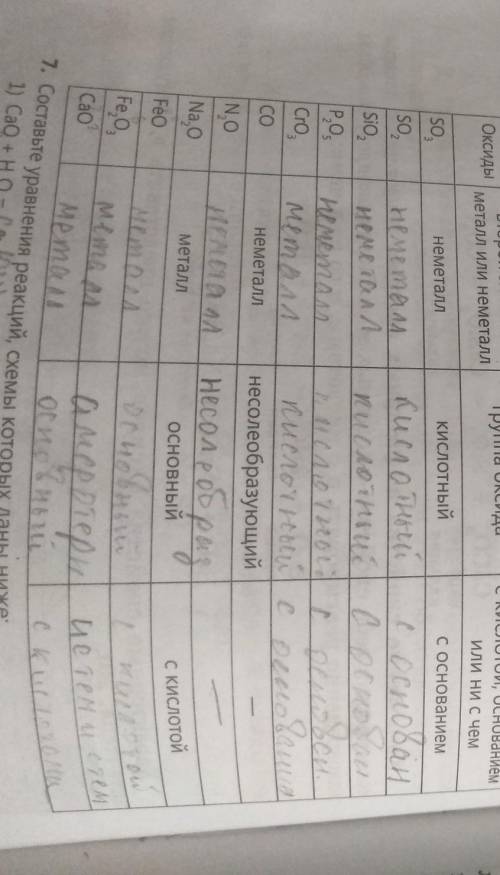 Оксиды металл или неметалл Группа оксида с кислотой, основанием или ни с чем
SO₃ неметалл кислотный с основанием
SO₂ неметалл кислотный с основан
SiO₂ неметалл кислотный с основан
P₂O₅ неметалл кислотный с основан
CrO₃ металл кислотный с основания
CO неметалл несолеобразующий –
N₂O неметалл несолеобраз —
Na₂O металл основный с кислотой
FeO металл основный с кислотой
Fe₂O₃ металл амфотерн и с тем и с тем
CaO металл основный с кислотами
7. Составьте уравнения реакций, схемы которых даны ниже:
1) CaO + H O =